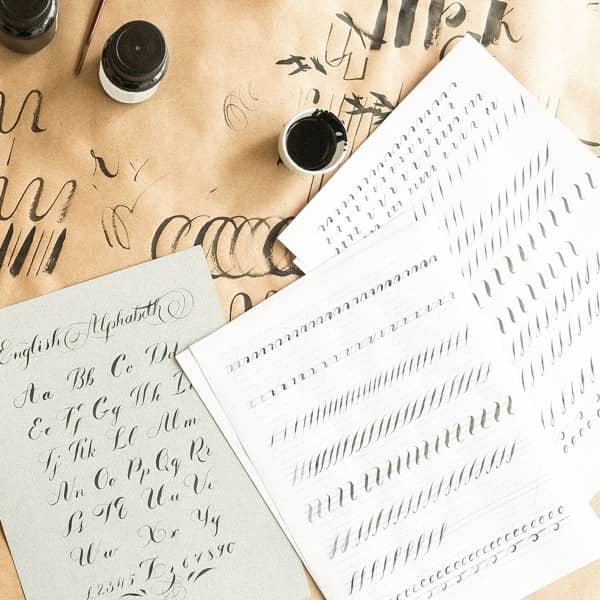 English Alphabeth
Aa Bb Cc Dd
Ee Ff Gg Hh Ii
Jj Kk Ll Mm
Nn Oo Pp Qq Rr
Ss Tt Uu Vv
Ww Xx Yy
12345 Zz 67890